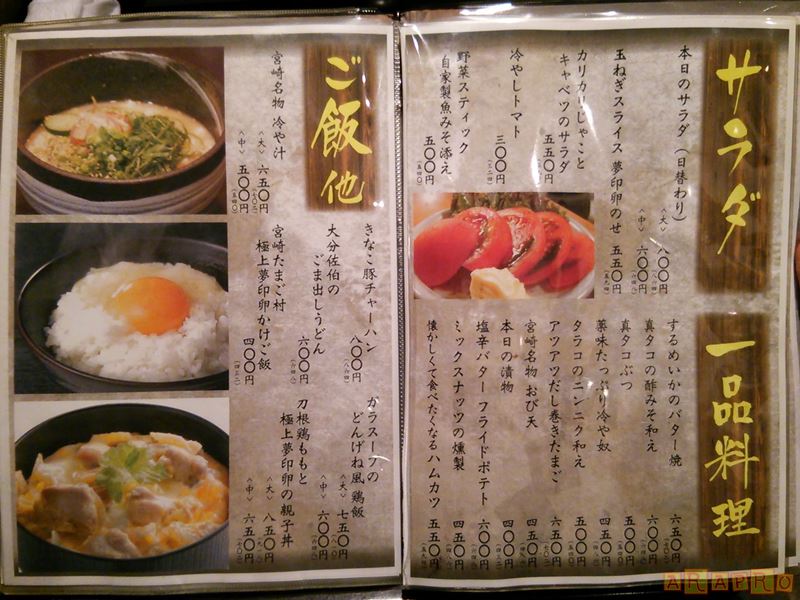 サラダ
本日のサラダ(日替わり)
<大> 八〇〇円
(八六四)
<中> 六〇〇円
(六四八)
玉ねぎスライス 夢印卵のせ 五五〇円
(五九四)
カリカリじゃこと
キャベツのサラダ
五五〇円
(五九四)
冷やしトマト
三〇〇円
(三二四)
野菜スティック
自家製魚みそ添え
五〇〇円
(五四〇)
一品料理
するめいかのバター焼 六五〇円
(七〇二)
真タコの酢みそ和え 六〇〇円
(六四八)
真タコぶつ 五〇〇円
(五四〇)
薬味たっぷり冷や奴 四五〇円
(四八六)
タラコのニンニク和え 五〇〇円
(五四〇)
アツアツだし巻きたまご 六五〇円
(七〇二)
宮崎名物 おび天 四五〇円
(四八六)
本日の漬物 四〇〇円
(四三二)
塩辛バター フライドポテト 六〇〇円
(六四八)
ミックスナッツの燻製 四五〇円
(四八六)
懐かしくて食べたくなるハムカツ 五五〇円
(五九四)
ご飯他
宮崎名物 冷や汁
<大> 六五〇円
(七〇二)
<中> 五〇〇円
(五四〇)
きなこ豚チャーハン
八〇〇円
(八六四)
大分佐伯の
ごま出しうどん
六〇〇円
(六四八)
宮崎たまご村
極上夢印卵かけご飯
四〇〇円
(四三二)
ガラスープの
どんげね風 鶏飯
<大> 七五〇円
(八一〇)
<中> 六〇〇円
(六四八)
刀根鶏ももと
極上夢印卵の親子丼
<大> 八五〇円
(九一八)
<中> 六五〇円
(七〇二)
ARAPRO